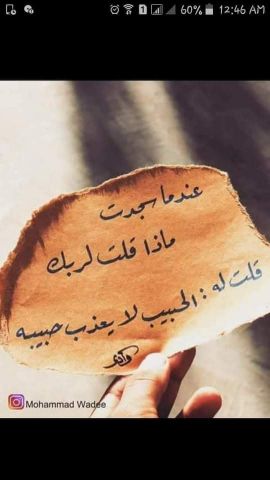 60% 12:46 AM
عندما سجدت
ماذا قلت لربك
قلت له : الحبيب لا يعذب حبيبه
Mohammad Wadee